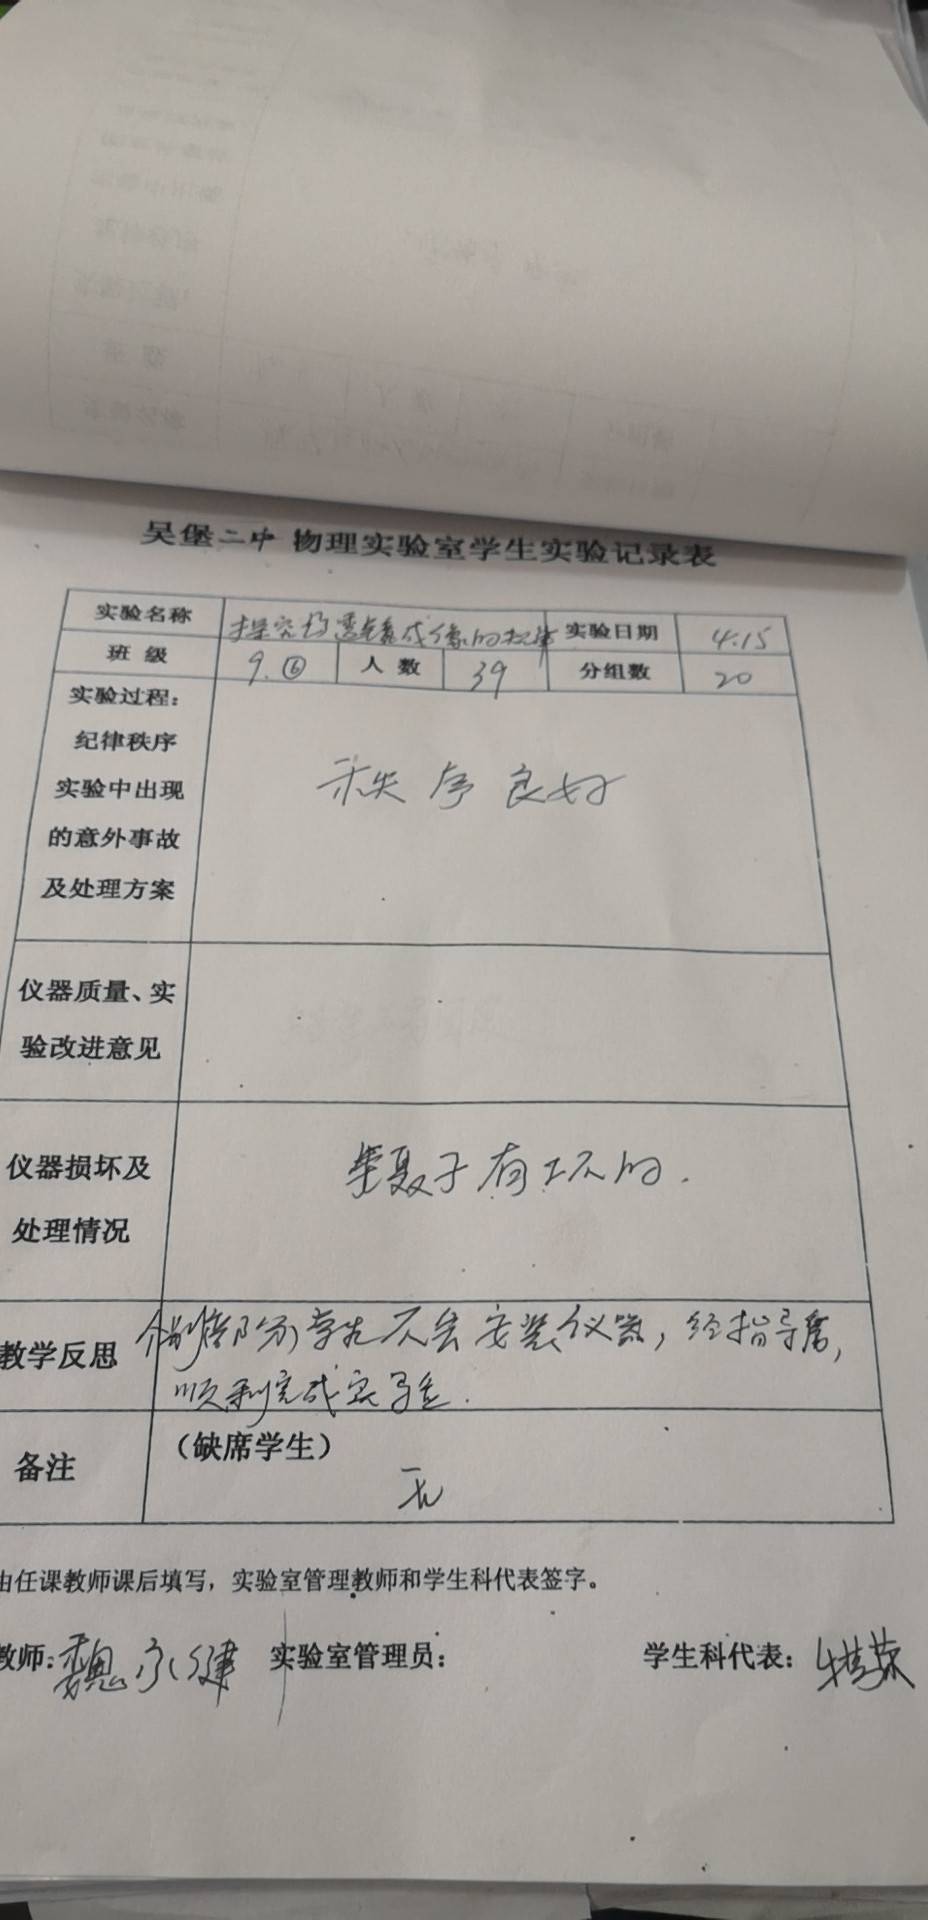 吴堡二中 物理实验室学生实验记录表
实验名称 探究凸透镜成像的规律 实验日期 4.15
班 级 9.⑥ 人 数 39 分组数 20
实验过程：
纪律秩序
实验中出现
的意外事故
及处理方案
秩序良好
仪器质量、实
验改进意见
仪器损坏及
处理情况
有坏的.
教学反思
部分学生不会安装仪器，经指导后，
顺利完成实验.
备注
（缺席学生）
无
由任课教师课后填写，实验室管理教师和学生科代表签字。
教师：魏永健 实验室管理员： 学生科代表：